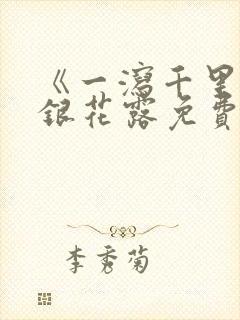 《一瀉千里
銀花露免費
李秀菊